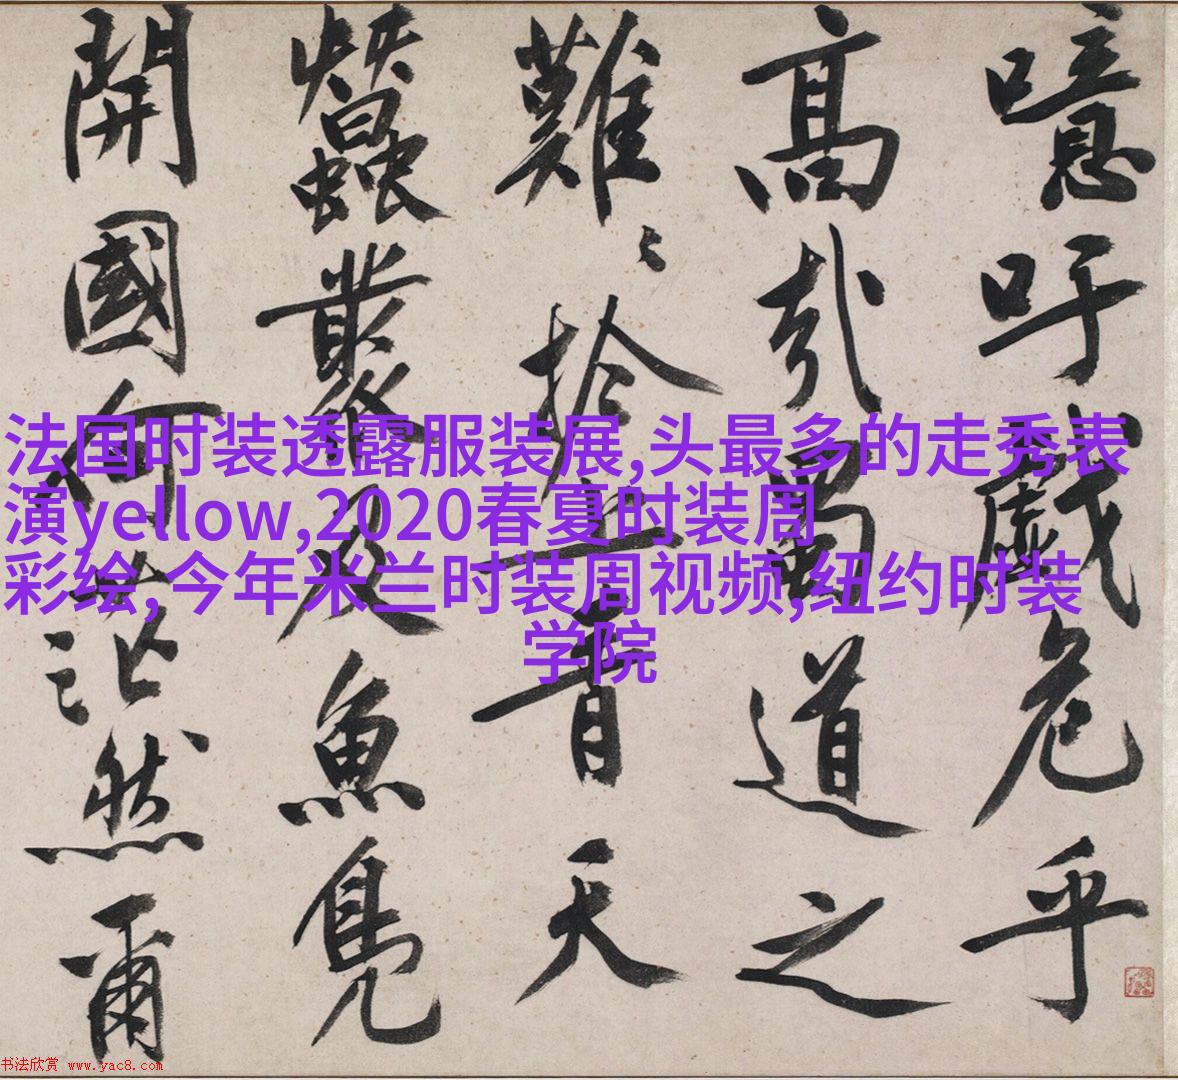 噫吁戲危乎
高哉蜀道之
難〻扵上青天
蠶叢及魚鳧
開國何茫然爾
法国时装透露服装展,头最多的走秀表
演yellow,2020春夏时装周
彩绘,今年米兰时装周视频,纽约时装
学院
书法欣赏 www.yac8.com